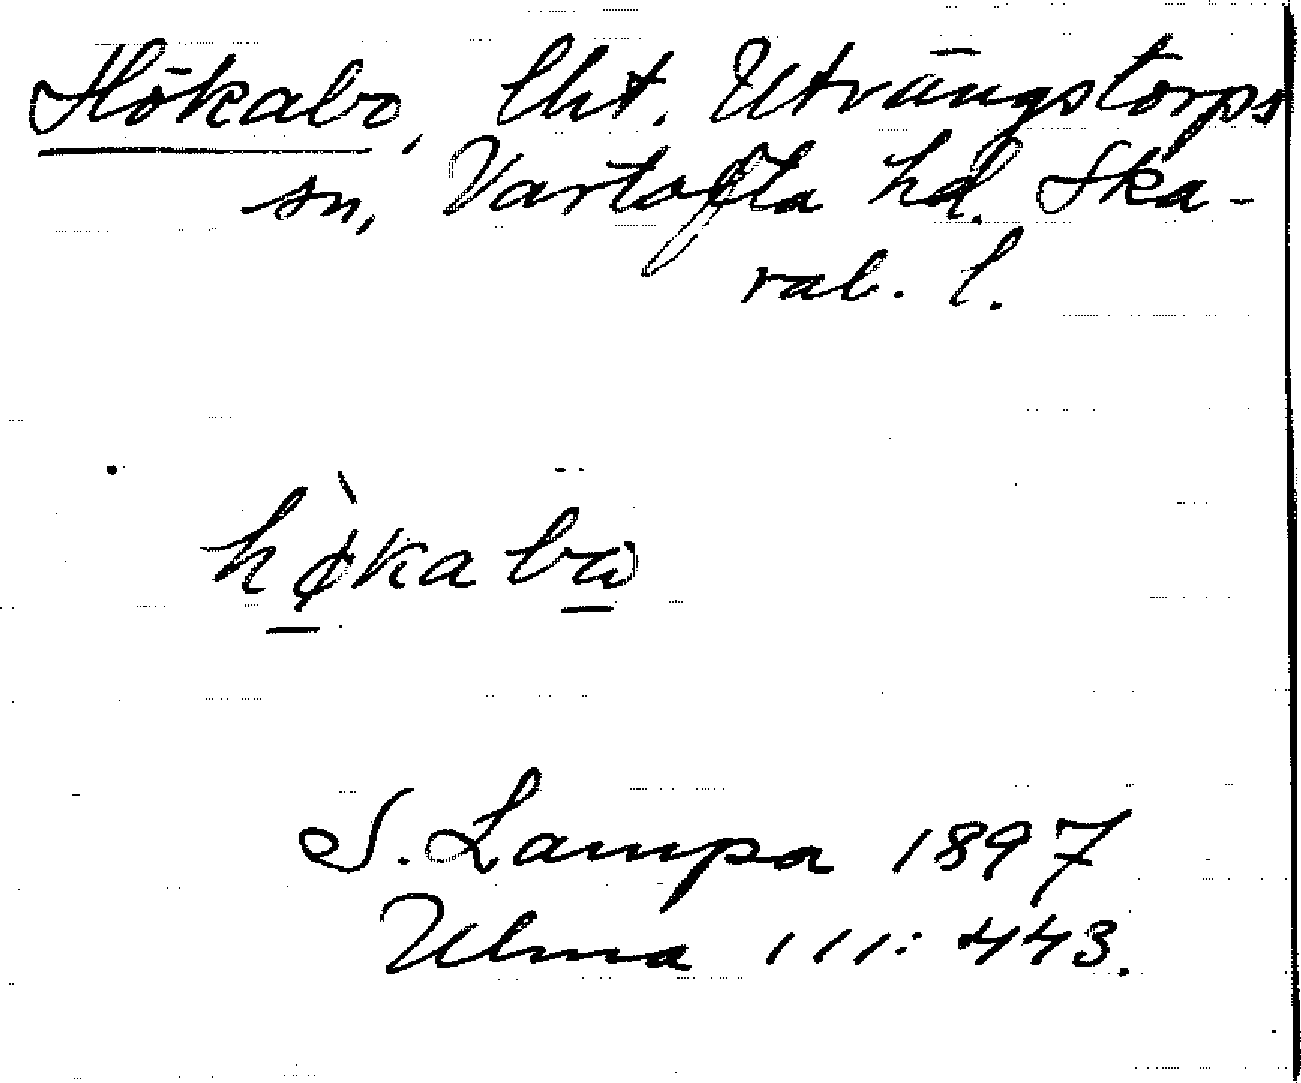 Hökabo, lht. Utvängstorps
sn, Vartofta hd. Ska-
rab. l.
hø̀kabω
S. Lampa 1897
Ulma 111:443.